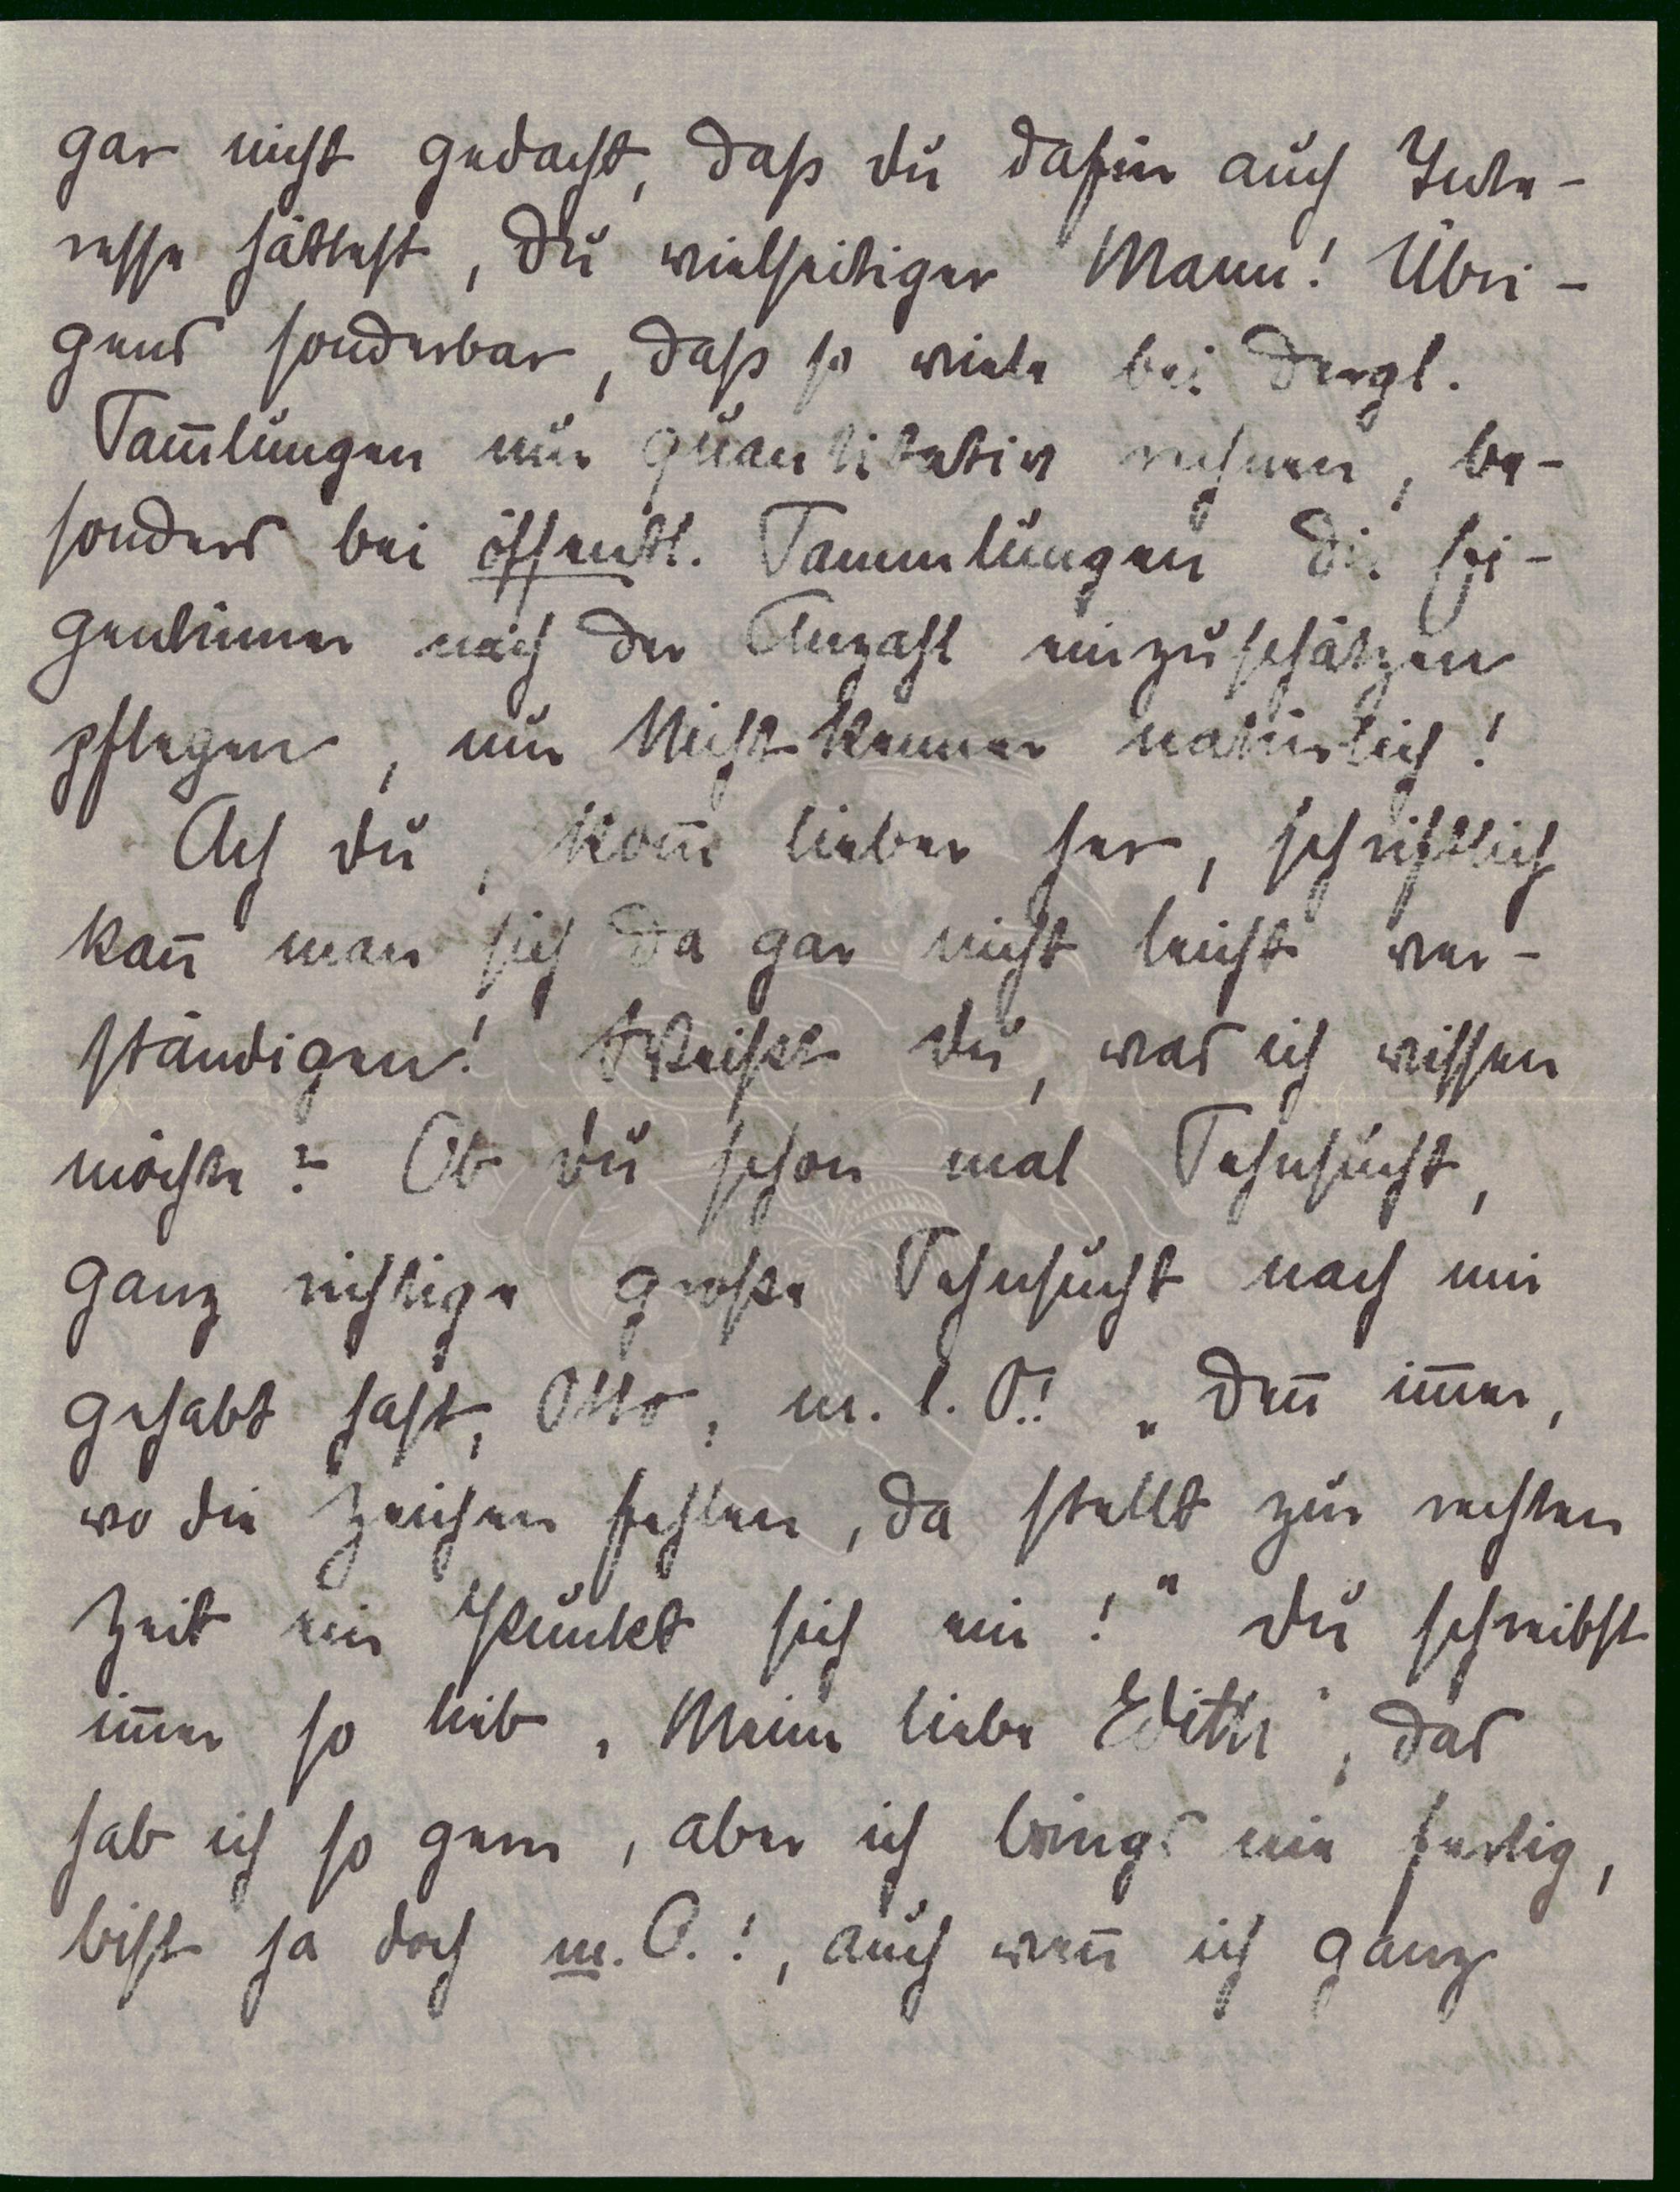 gar nicht gedacht, daß du dafür auch Inte-
resse hättest, Du vielseitiger Mann! Übri-
gens sonderbar, daß so viele bei dergl.
Sam̅lungen nur quantitativ rechnen, be-
sonders bei öffentl. Sammlungen die Ei-
gentümer nach der Anzahl einzuschätzen
pflegen, nur Nichtkenner natürlich!
Ach du, kom̅ lieber her, schriftlich
kan̅ man sich da gar nicht leicht ver-
ständigen! Weißt du, was ich wissen
möchte? Ob du schon mal Sehnsucht,
ganz richtige große Sehnsucht nach mir
gehabt hast, Otto, m. l. O.! „Den̅ im̅er,
wo die Zeichen fehlen, da stellt zur rechten
Zeit ein Punkt sich ein!" Du schreibst
im̅er so lieb „Meine liebe Edith", das
hab ich so gern, aber ich brings nie fertig,
bist ja doch m. O.!, auch wen̅ ich ganz